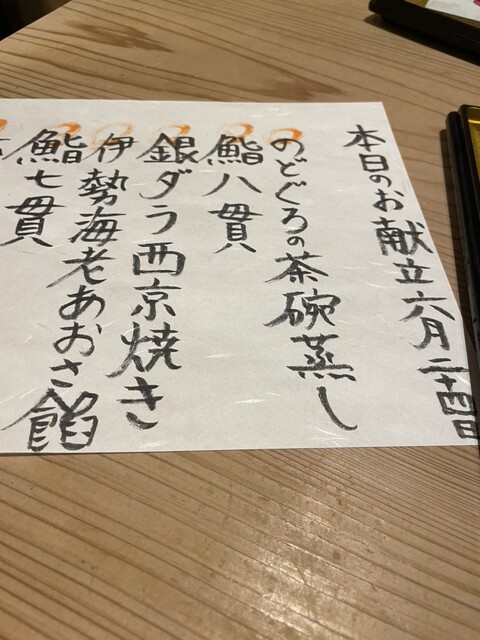 本日のお献立六月二十四日
のどぐろの茶碗蒸し
鮨八貫
銀ダラ西京焼き
伊勢海老あおさ餡
鮨七貫